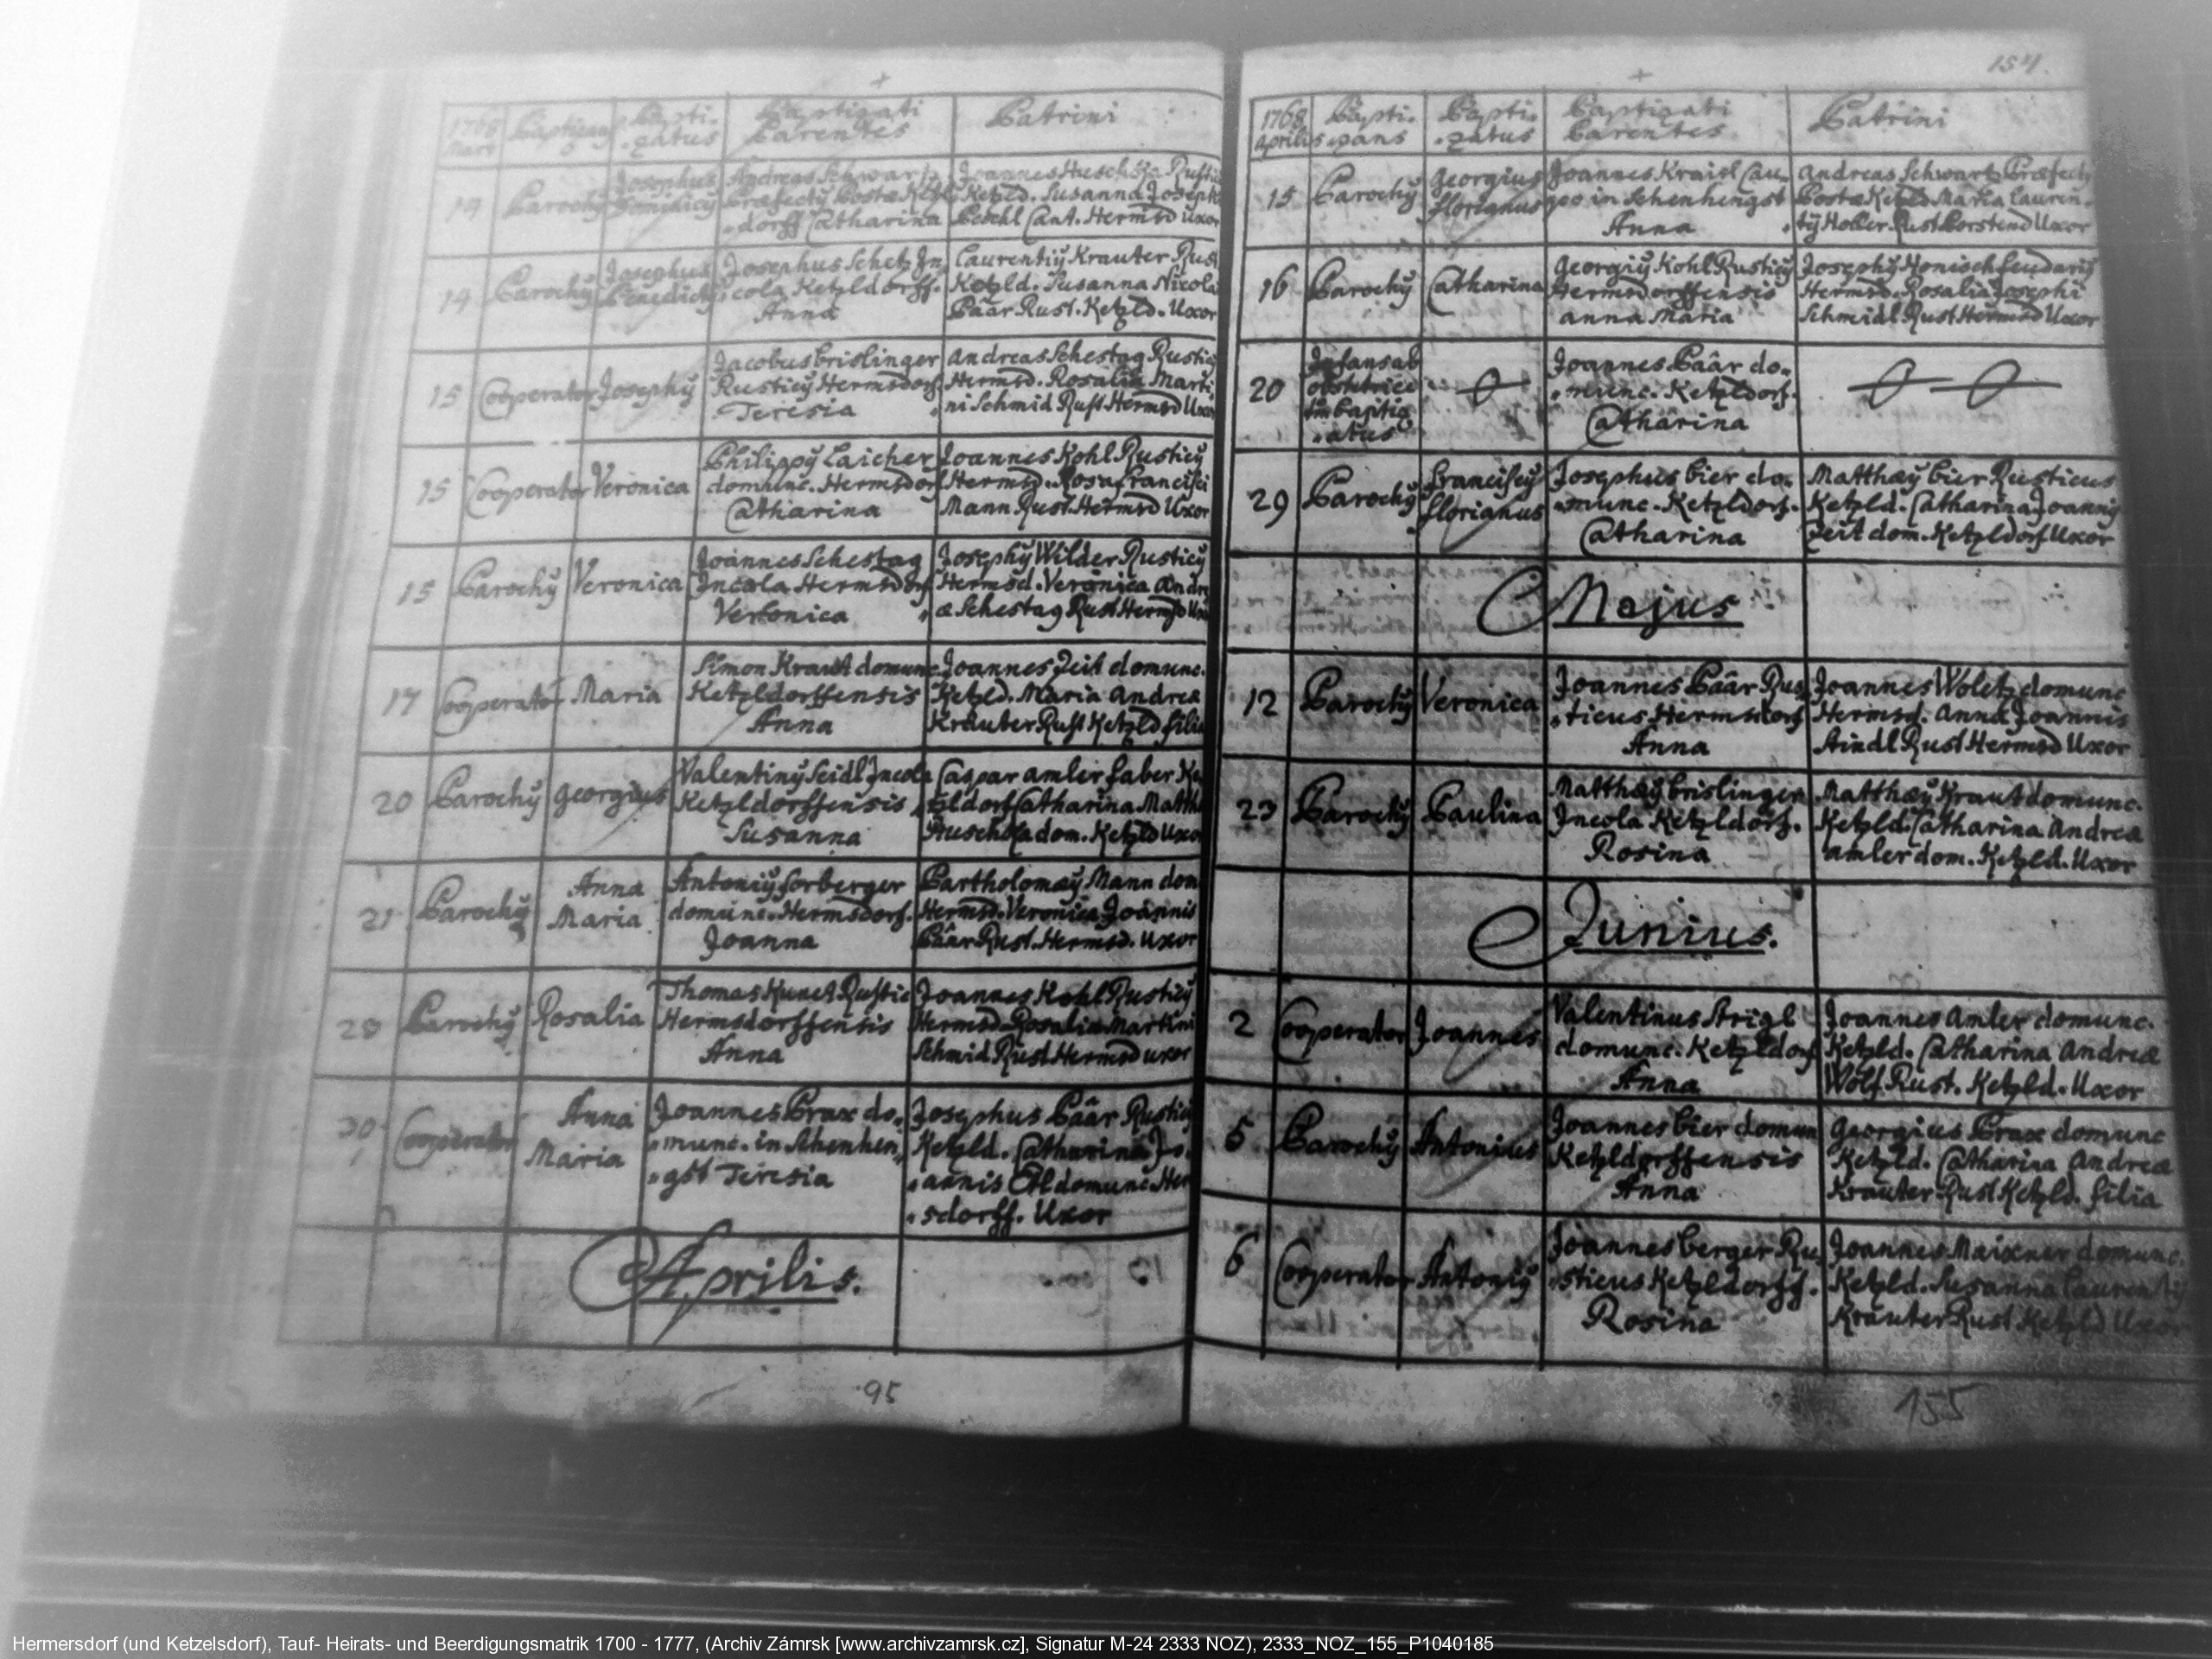 154.
1768 Mart
Baptizans
Bapti-
zatus
Baptizati
Parentes
Patrini
19
Parochÿ
Josephus
Andreas Schwartz
Præfectÿ Postæ Ketzl
dorff Catharina
Joannes Huschka Rustic
Ketzld. Susanna Josephi
Peschl Cant. Hermsd Uxor
19
Parochÿ
Josephus
Benedictÿ
Josephus Schetz In
cola Ketzldorff.
Anna
Laurentiÿ Krauter Rust
Ketzld. Susanna Nicola
Päär Rust. Ketzld. Uxor
15
Cooperator
Josephÿ
Jacobus brislinger
Rusticÿ Hermsdorf
Teresia
Andreas Schestag Rustic
Hermsd. Rosalia Marti
ni Schmid Rust Hermsd Uxor
15
Cooperator
Veronica
Philippÿ Laicher
domunc. Hermsdorf
Catharina
Joannes Kohl Rusticÿ
Hermsd. Rosa francisci
Mann Rust. Hermsd Uxor
15
Parochÿ
Veronica
Joannes Schestag
Incola Hermsdorf
Veronica
Josephÿ Wilder Rusticÿ
Hermsd. Veronica Andre
æ Schestag Rust Hermsd Uxo
17
Cooperator
Maria
Simon Kraut domunc
Ketzldorffensis
Anna
Joannes Zeit domunc.
Ketzld. Maria Andreæ
Krauter Rust Ketzld filia
20
Parochÿ
Georgius
Valentinÿ Seidl Incola
Ketzldorffensis
Susanna
Caspar Amler faber Ke
tzldorf Catharina Matth
Huschka dom. Ketzld Uxo
21
Parochÿ
Anna
Maria
Antoniÿ forberger
domunc. Hermsdorf.
Joanna
Bartholomæÿ Mann dom
Hermsd. Veronica Joannis
Päär Rust. Hermsd. Uxor
28
Parochÿ
Rosalia
Thomas Kunct Rustic
Hermsdorffensis
Anna
Joannes Kohl Rusticÿ
Hermsd Rosalia Martini
Schmid Rust Hermsd uxor
30
Cooperator
Anna
Maria
Joannes Prax do-
munc. in Schenhen
gst Teresia
Josephus Päär Rusticÿ
Ketzld. Catharina Jo
annis Etl domunc Her
sdorff. Uxor
Aprilis.
95
1768
Aprilis
Bapti-
zans
Bapti-
zatus
Baptizati
Parentes
Patrini
15
Parochÿ
Georgius
florianus
Joannes Kraisl Cau
poo in Schenhengst
Anna
Andreas Schwartz Præfect
Postæ Ketzld Maria Lauren
tÿ Holler Rust Porstend Uxor
16
Parochÿ
Catharina
Georgiÿ Kohl Rusticÿ
Hermsdorffensis
Anna Maria
Josephÿ Honisch feudariÿ
Hermsd. Rosalia Josephi
Schmidl Rust Hermsd Uxor
20
Infans ab
obstetrice
baptiz
atus
Joannes Päär do-
munc. Ketzldorf.
Catharina
29
Parochÿ
Franciscÿ
florianus
Josephus bier do
munc. Ketzldorf.
Catharina
Matthæÿ bier Rusticus
Ketzld. Catharina Joannis
Zeit dom. Ketzldorf Uxor
Majus
12
Parochÿ
Veronica
Joannes Päär Rus
ticus Hermsdorf
Anna
Joannes Woletz domunc
Hermsd. Anna Joannis
Aindl Rust Hermsd Uxor
23
Parochÿ
Paulina
Matthæÿ brislinger
Incola Ketzldorf.
Rosina
Matthæÿ Kraut domunc.
Ketzld. Catharina Andreæ
Amler dom. Ketzld. Uxor
Junius.
2
Cooperator
Joannes
Valentinus Strigl
domunc. Ketzldorf
Anna
Joannes Amler domunc.
Ketzld. Catharina Andreæ
Wolf Rust. Ketzld. Uxor
5
Parochÿ
Antonius
Joannes bier domun
Ketzldorffensis
Anna
Georgius Prax domunc
Ketzld. Catharina Andreæ
Krauter Rust Ketzld. filia
6
Cooperator
Antoniÿ
Joannes berger Ru
sticus Ketzldorff.
Rosina
Joannes Maixner domunc.
Ketzld. Susanna Laurentÿ
Krauter Rust Ketzld Uxor
155
Hermersdorf (und Ketzelsdorf), Tauf- Heirats- und Beerdigungsmatrik 1700 - 1777, (Archiv Zámrsk [www.archivzamrsk.cz], Signatur M-24 2333 NOZ), 2333_NOZ_155_P1040185